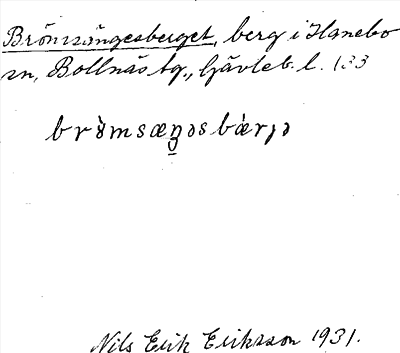 Brömsängesberget, berg i Hanebo
sn, Bollnäs tg., Gävleb. l. 133
brömsæŋəsbærjə
Nils Erik Eriksson 1931.